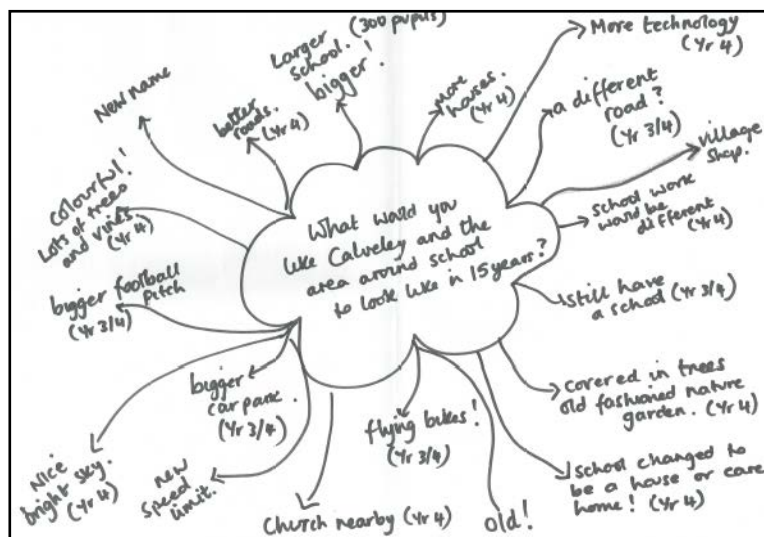 What would you
like Calveley and the
area around school
to look like in 15 years?
New name
better
roads.
(Yr 4)
Larger
school. (300 pupils)
bigger!
more
houses.
(Yr 4)
More technology
(Yr 4)
a different
road?
(Yr 3/4)
village
shop.
school work
would be
different
(Yr 4)
still have
a school (Yr 3/4)
covered in trees
old fashioned nature
garden. (Yr 4)
school changed to
be a house or care
home! (Yr 4)
old!
flying bikes!
(Yr 3/4)
Church nearby (Yr 4)
new
speed
limit.
bigger
car park.
(Yr 3/4)
Nice
bright sky.
(Yr 4)
bigger football
pitch
(Yr 3/4)
colourful!
Lots of trees
and vines
(Yr 4)